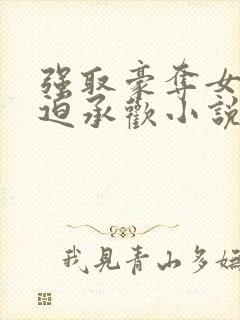 强取豪奪女
迫承歡小說
我見青山多嫵